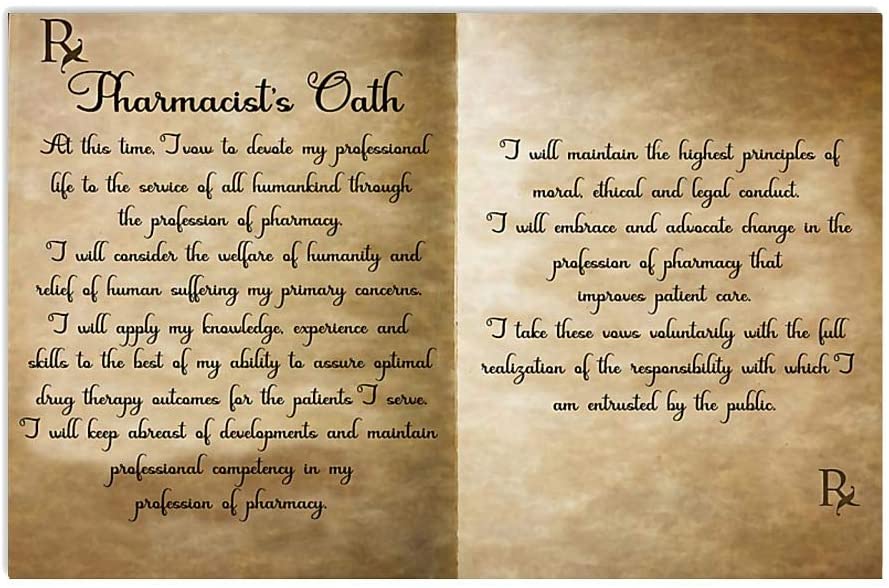 Rx
Pharmacist's Oath
At this time, I vow to devote my professional
life to the service of all humankind through
the profession of pharmacy.
I will consider the welfare of humanity and
relief of human suffering my primary concerns.
I will apply my knowledge, experience and
skills to the best of my ability to assure optimal
drug therapy outcomes for the patients I serve.
I will keep abreast of developments and maintain
professional competency in my
profession of pharmacy.
I will maintain the highest principles of
moral, ethical and legal conduct.
I will embrace and advocate change in the
profession of pharmacy that
improves patient care.
I take these vows voluntarily with the full
realization of the responsibility with which I
am entrusted by the public.
Rx